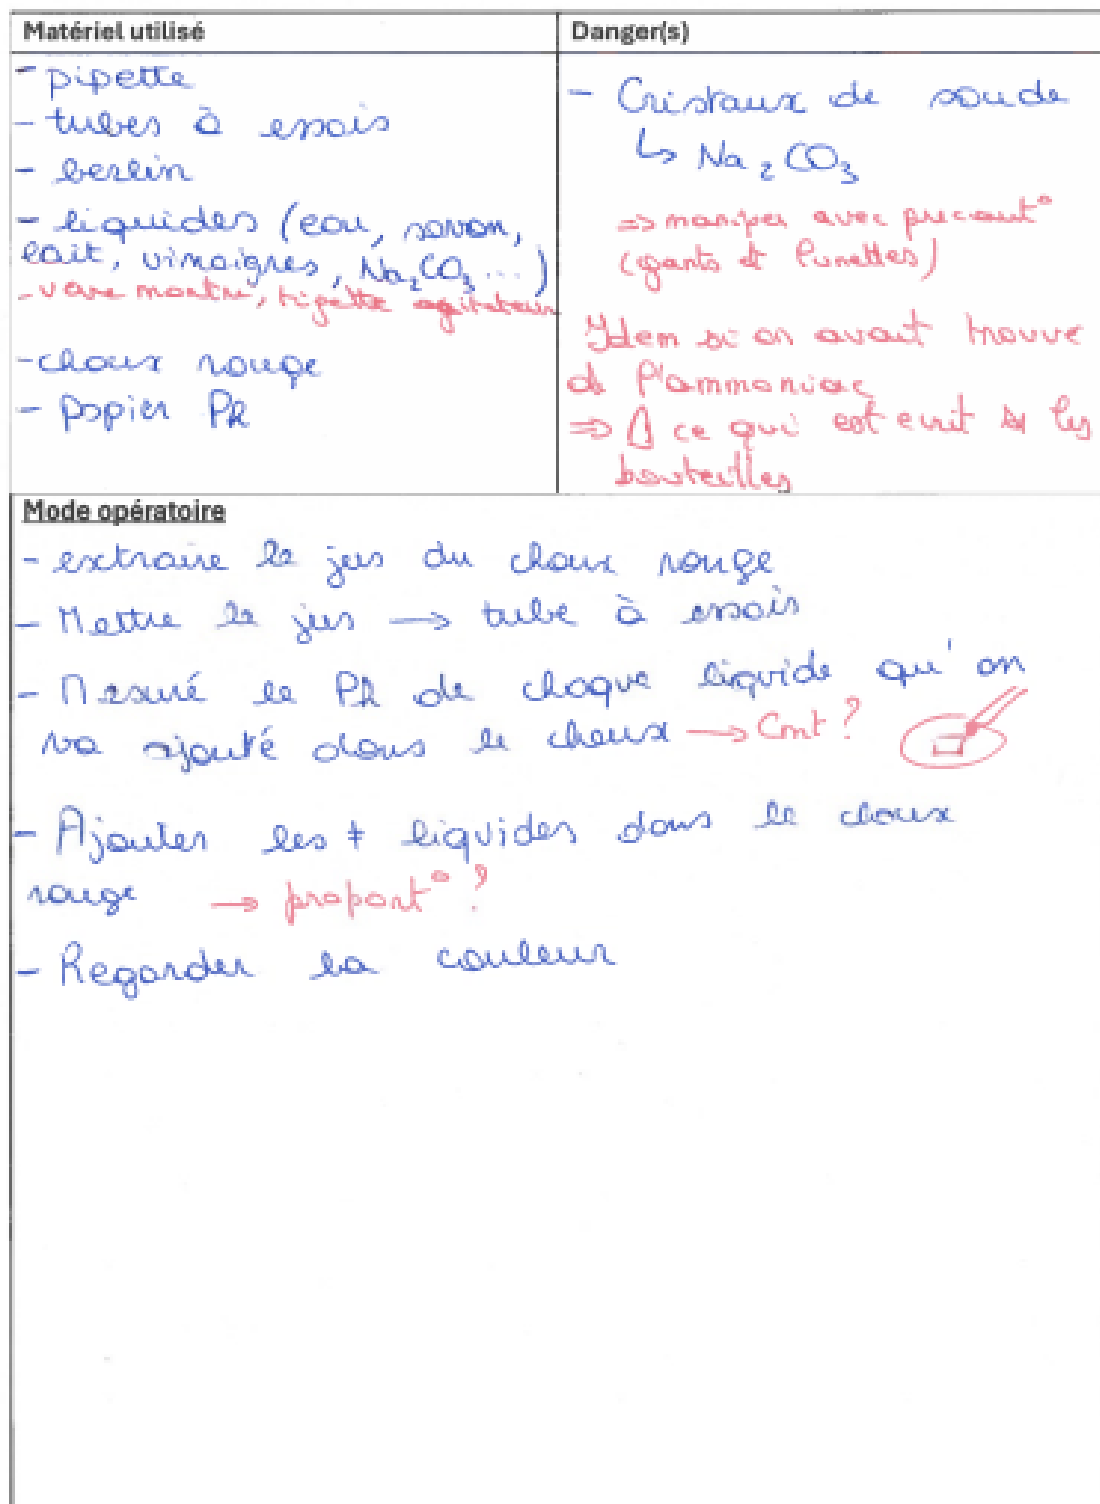 Matériel utilisé
- pipette
- tubes à essais
- berlin
- liquides (eau, savon,
lait, vinaigres, Na2CO3 ...)
- verre montre, tigette agitateur
- choux rouge
- papier Ph
Danger(s)
- Cristaux de soude
↳ Na2CO3
=> maniper avec precaut°
(gants et lunettes)
Idem si on avait trouve
de l'ammoniac
=> ⚠ ce qui est ecrit sr les
bouteilles
Mode opératoire
- extraire le jus du choux rouge
- Mettre le jus → tube à essais
- Mesuré le Ph de chaque liquide qu'on
va ajouté dans le choux → Cmt ?
- Ajouter les ≠ liquides dans le choux
rouge → proport° ?
- Regarder la couleur